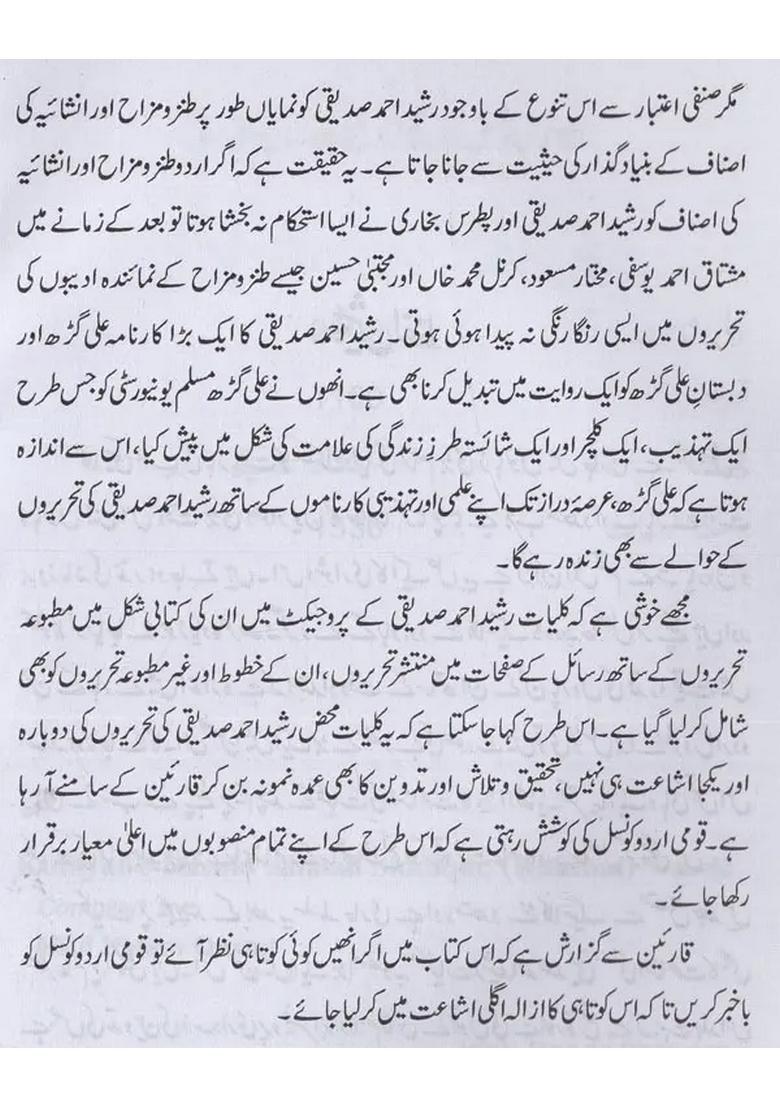 مگر صنفی اعتبار سے اس تنوع کے باوجود رشید احمد صدیقی کو نمایاں طور پر طنز و مزاح اور انشائیہ کی
اصناف کے بنیاد گذار کی حیثیت سے جانا جاتا ہے۔ یہ حقیقت ہے کہ اگر اردو طنز و مزاح اور انشائیہ
کی اصناف کو رشید احمد صدیقی اور پطرس بخاری نے ایسا استحکام نہ بخشا ہوتا تو بعد کے زمانے میں
مشتاق احمد یوسفی، مختار مسعود، کرنل محمد خاں اور مجتبیٰ حسین جیسے طنز و مزاح کے نمائندہ ادیبوں کی
تحریروں میں ایسی رنگا رنگی نہ پیدا ہوئی ہوتی۔ رشید احمد صدیقی کا ایک بڑا کارنامہ علی گڑھ اور
دبستانِ علی گڑھ کو ایک روایت میں تبدیل کرنا بھی ہے۔ انھوں نے علی گڑھ مسلم یونیورسٹی کو جس طرح
ایک تہذیب، ایک کلچر اور ایک شائستہ طرزِ زندگی کی علامت کی شکل میں پیش کیا، اس سے اندازہ
ہوتا ہے کہ علی گڑھ، عرصۂ دراز تک اپنے علمی اور تہذیبی کارناموں کے ساتھ رشید احمد صدیقی کی تحریروں
کے حوالے سے بھی زندہ رہے گا۔
مجھے خوشی ہے کہ کلیات رشید احمد صدیقی کے پروجیکٹ میں ان کی کتابی شکل میں مطبوعہ
تحریروں کے ساتھ رسائل کے صفحات میں منتشر تحریروں، ان کے خطوط اور غیر مطبوعہ تحریروں کو بھی
شامل کر لیا گیا ہے۔ اس طرح کہا جا سکتا ہے کہ یہ کلیات محض رشید احمد صدیقی کی تحریروں کی دوبارہ
اور یکجا اشاعت ہی نہیں، تحقیق و تلاش اور تدوین کا بھی عمدہ نمونہ بن کر قارئین کے سامنے آ رہا
ہے۔ قومی اردو کونسل کی کوشش رہتی ہے کہ اس طرح کے اپنے تمام منصوبوں میں اعلیٰ معیار برقرار
رکھا جائے۔
قارئین سے گزارش ہے کہ اس کتاب میں اگر انھیں کوئی کوتاہی نظر آئے تو قومی اردو کونسل کو
باخبر کریں تا کہ اس کوتاہی کا ازالہ اگلی اشاعت میں کر لیا جائے۔